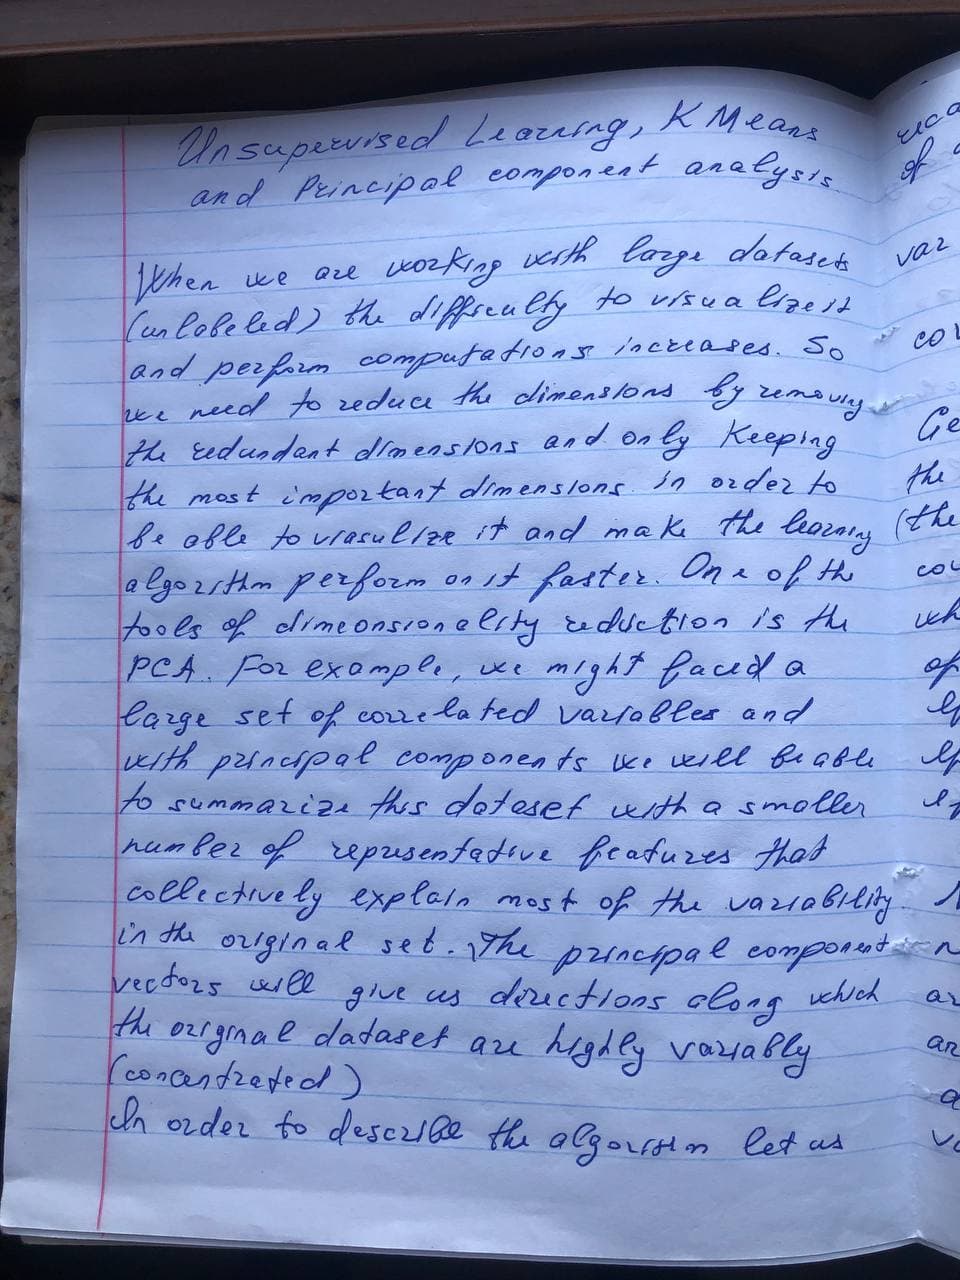 Unsupervised Learning, K Means
and Principal component analysis
When we are working with large datasets
(unlabeled) the difficulty to visualize it
and perform computations increases. So
we need to reduce the dimensions by removing
the redundant dimensions and only Keeping
the most important dimensions in order to
be able to viasulize it and make the learning
algorithm perform on it faster. One of the
tools of dimeonsionality reduction is the
PCA. For example, we might faced a
large set of correlated variables and
with principal components we will be able
to summarize this dataset with a smaller
number of representative features that
collectively explain most of the variability
in the original set. The principal component
vectors will give us directions along which
the original dataset are highly variably
(concentrated)
In order to describe the algorithm let us
of
var
Ge
the
(the
of